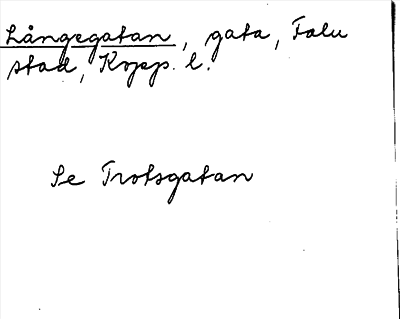 Långegatan, gata, Falu
stad, Kopp. l.
Se Trotsgatan